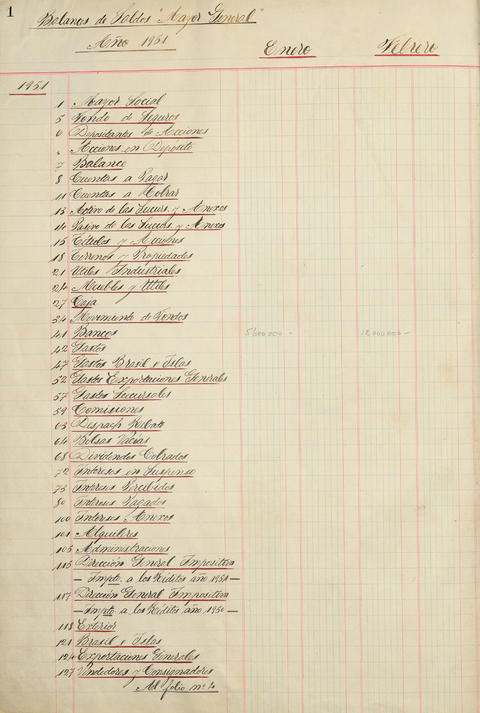 1
Balance de Saldos "Mayor General"
Año 1951
Enero Febrero
1951
1 Mayor Social
5 Fondo de Seguros
6 Depositantes de Acciones
" Acciones en Deposito
7 Balance
8 Cuentas a Pagar
11 Cuentas a Cobrar
13 Activo de las Sucurs. y Anexos
14 Pasivo de las Sucurs. y Anexos
15 Titulos y Acciones
18 Terrenos y Propiedades
21 Utiles Industriales
24 Muebles y Utiles
27 Caja
34 Movimiento de Fondos
41 Bancos 18.000.000-
42 Gastos
47 Gastos Brasil e Islas
52 Gastos Exportaciones Generales
57 Gastos Sucursales
59 Comisiones
63 Despacho
64 Bolsas Vacias
68 Dividendos Cobrados
72 Intereses en Suspenso
73 Intereses Percibidos
80 Intereses Pagados
100 Intereses Anexos
101 Alquileres
105 Administraciones
115 Dirección General Impositiva
— Impto. a los Réditos año 1951 —
117 Dirección General Impositiva
— Impto. a los Réditos año 1950 —
118 Exterior
121 Brasil e Islas
124 Exportaciones Generales
127 Vendedores y Consignadores
Al folio nº